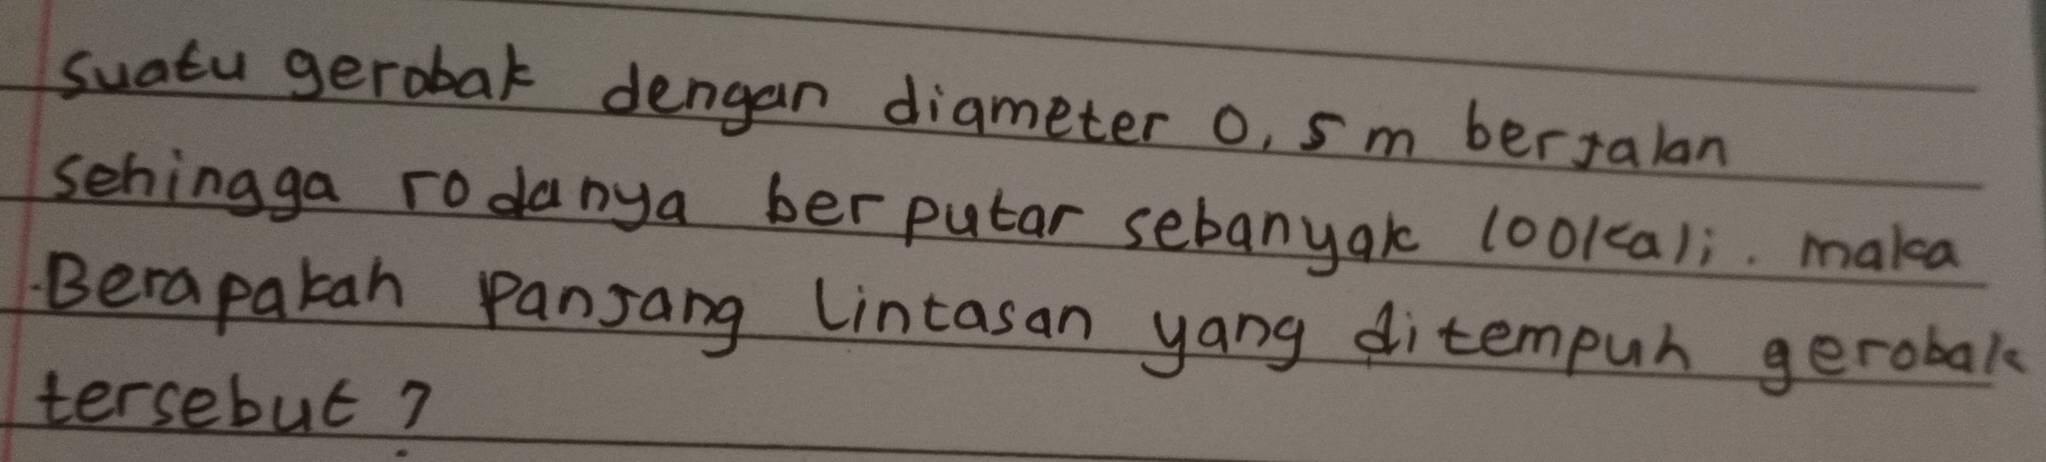 suatu gerobak dengan diameter 0,5 m berjalan
sehingga rodanya berputar sebanyak 100 kali. maka
Berapakah panjang lintasan yang ditempuh gerobak
tersebut ?